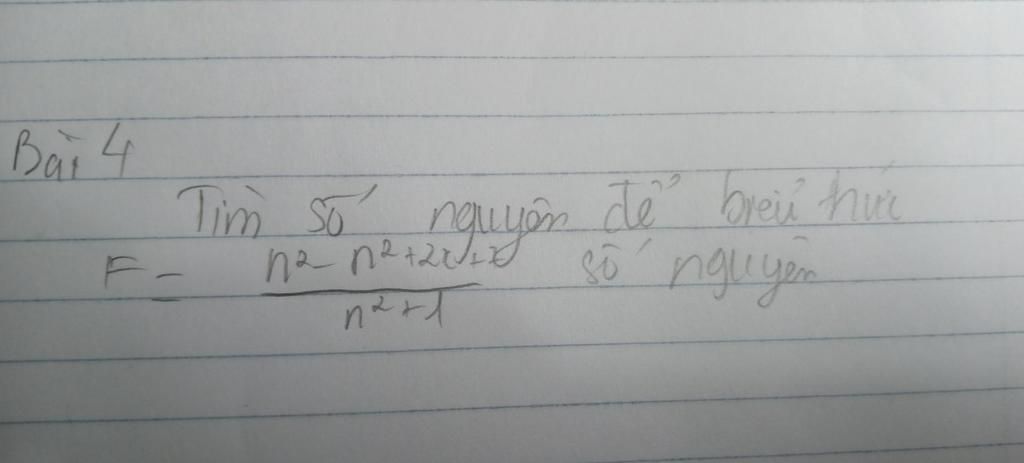 Bài 4
Tìm số nguyên để biểu thức
F = n² - n² + 2x + x / n² + 1 số nguyên